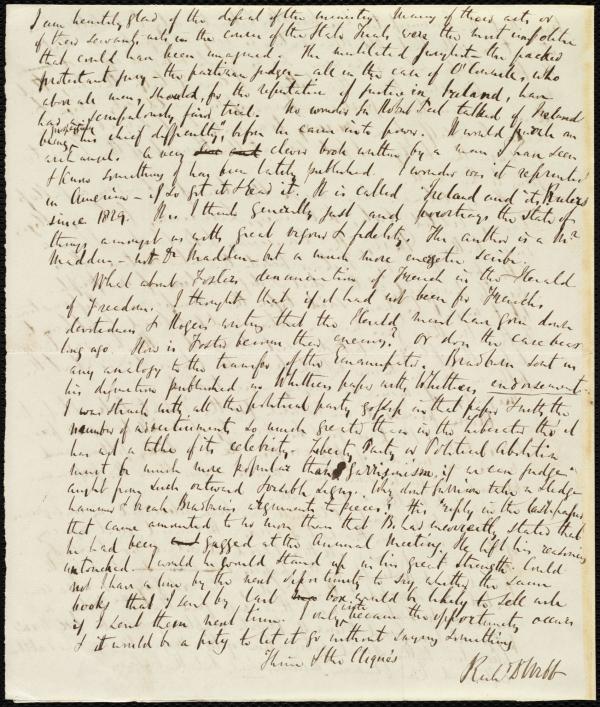 I am heartily glad of the defeat of the ministry. Many of their acts or
of their servants acts in the course of the State Trials were the most
that could have been imagined. The mutilated Jury list - the packed
protestant jury - the partizan judges - all in the case of O'Connell, who
above all men, should, for the reputation of justice in Ireland, have
had a scrupulously fair trial. No wonder Sir Robert Peel talked of Ireland
being his chief difficulty, before he came into power. It would puzzle an
archangel. A very clever book written by a man I have seen
& know something of has been lately published. I wonder was it reprinted
in America - if so get it & read it. It is called Ireland and its Rulers
since 1829. It is I think generally just and pourtrays the state of
things amongst us with great vigour & fidelity. The author is a Mr
Madden - not Dr Madden - but a much more energetic scribe.
What about Foster's denunciation of French in the Herald
of Freedom. I thought that if it had not been for French's
devotedness & Rogers' writing that the Herald must have gone down
long ago. How is Foster become their enemy? Or does the case bear
any analogy to the transfer of the Emancipator. Bradburn sent us
his defection published in Whittier's paper with Whittier's endorsement.
I was struck with all the political party gossip in that paper & with the
number of advertisements so much greater than in the Liberator tho' it
has not a tithe of its celebrity. Liberty Party or Political Abolition
must be much more popular than Garrisonism, if we can judge
aught from such outward & visible signs. Why dont Garrison take a sledge
hammer & break Bradburn's arguments to pieces. His reply in the last paper
that came amounted to no more than that B. has incorrectly stated that
he had been gagged at the Annual Meeting. He left his reasoning
untouched. I would he would stand up in his great strength. Could
not I have a line by the next opportunity to say whether the same
books that I sent by last box would be likely to sell well
if I sent them next time. I only write because the opportunity occurs
& it would be a pity to let it go without saying something
Thine & the Clique's
Richd D Webb